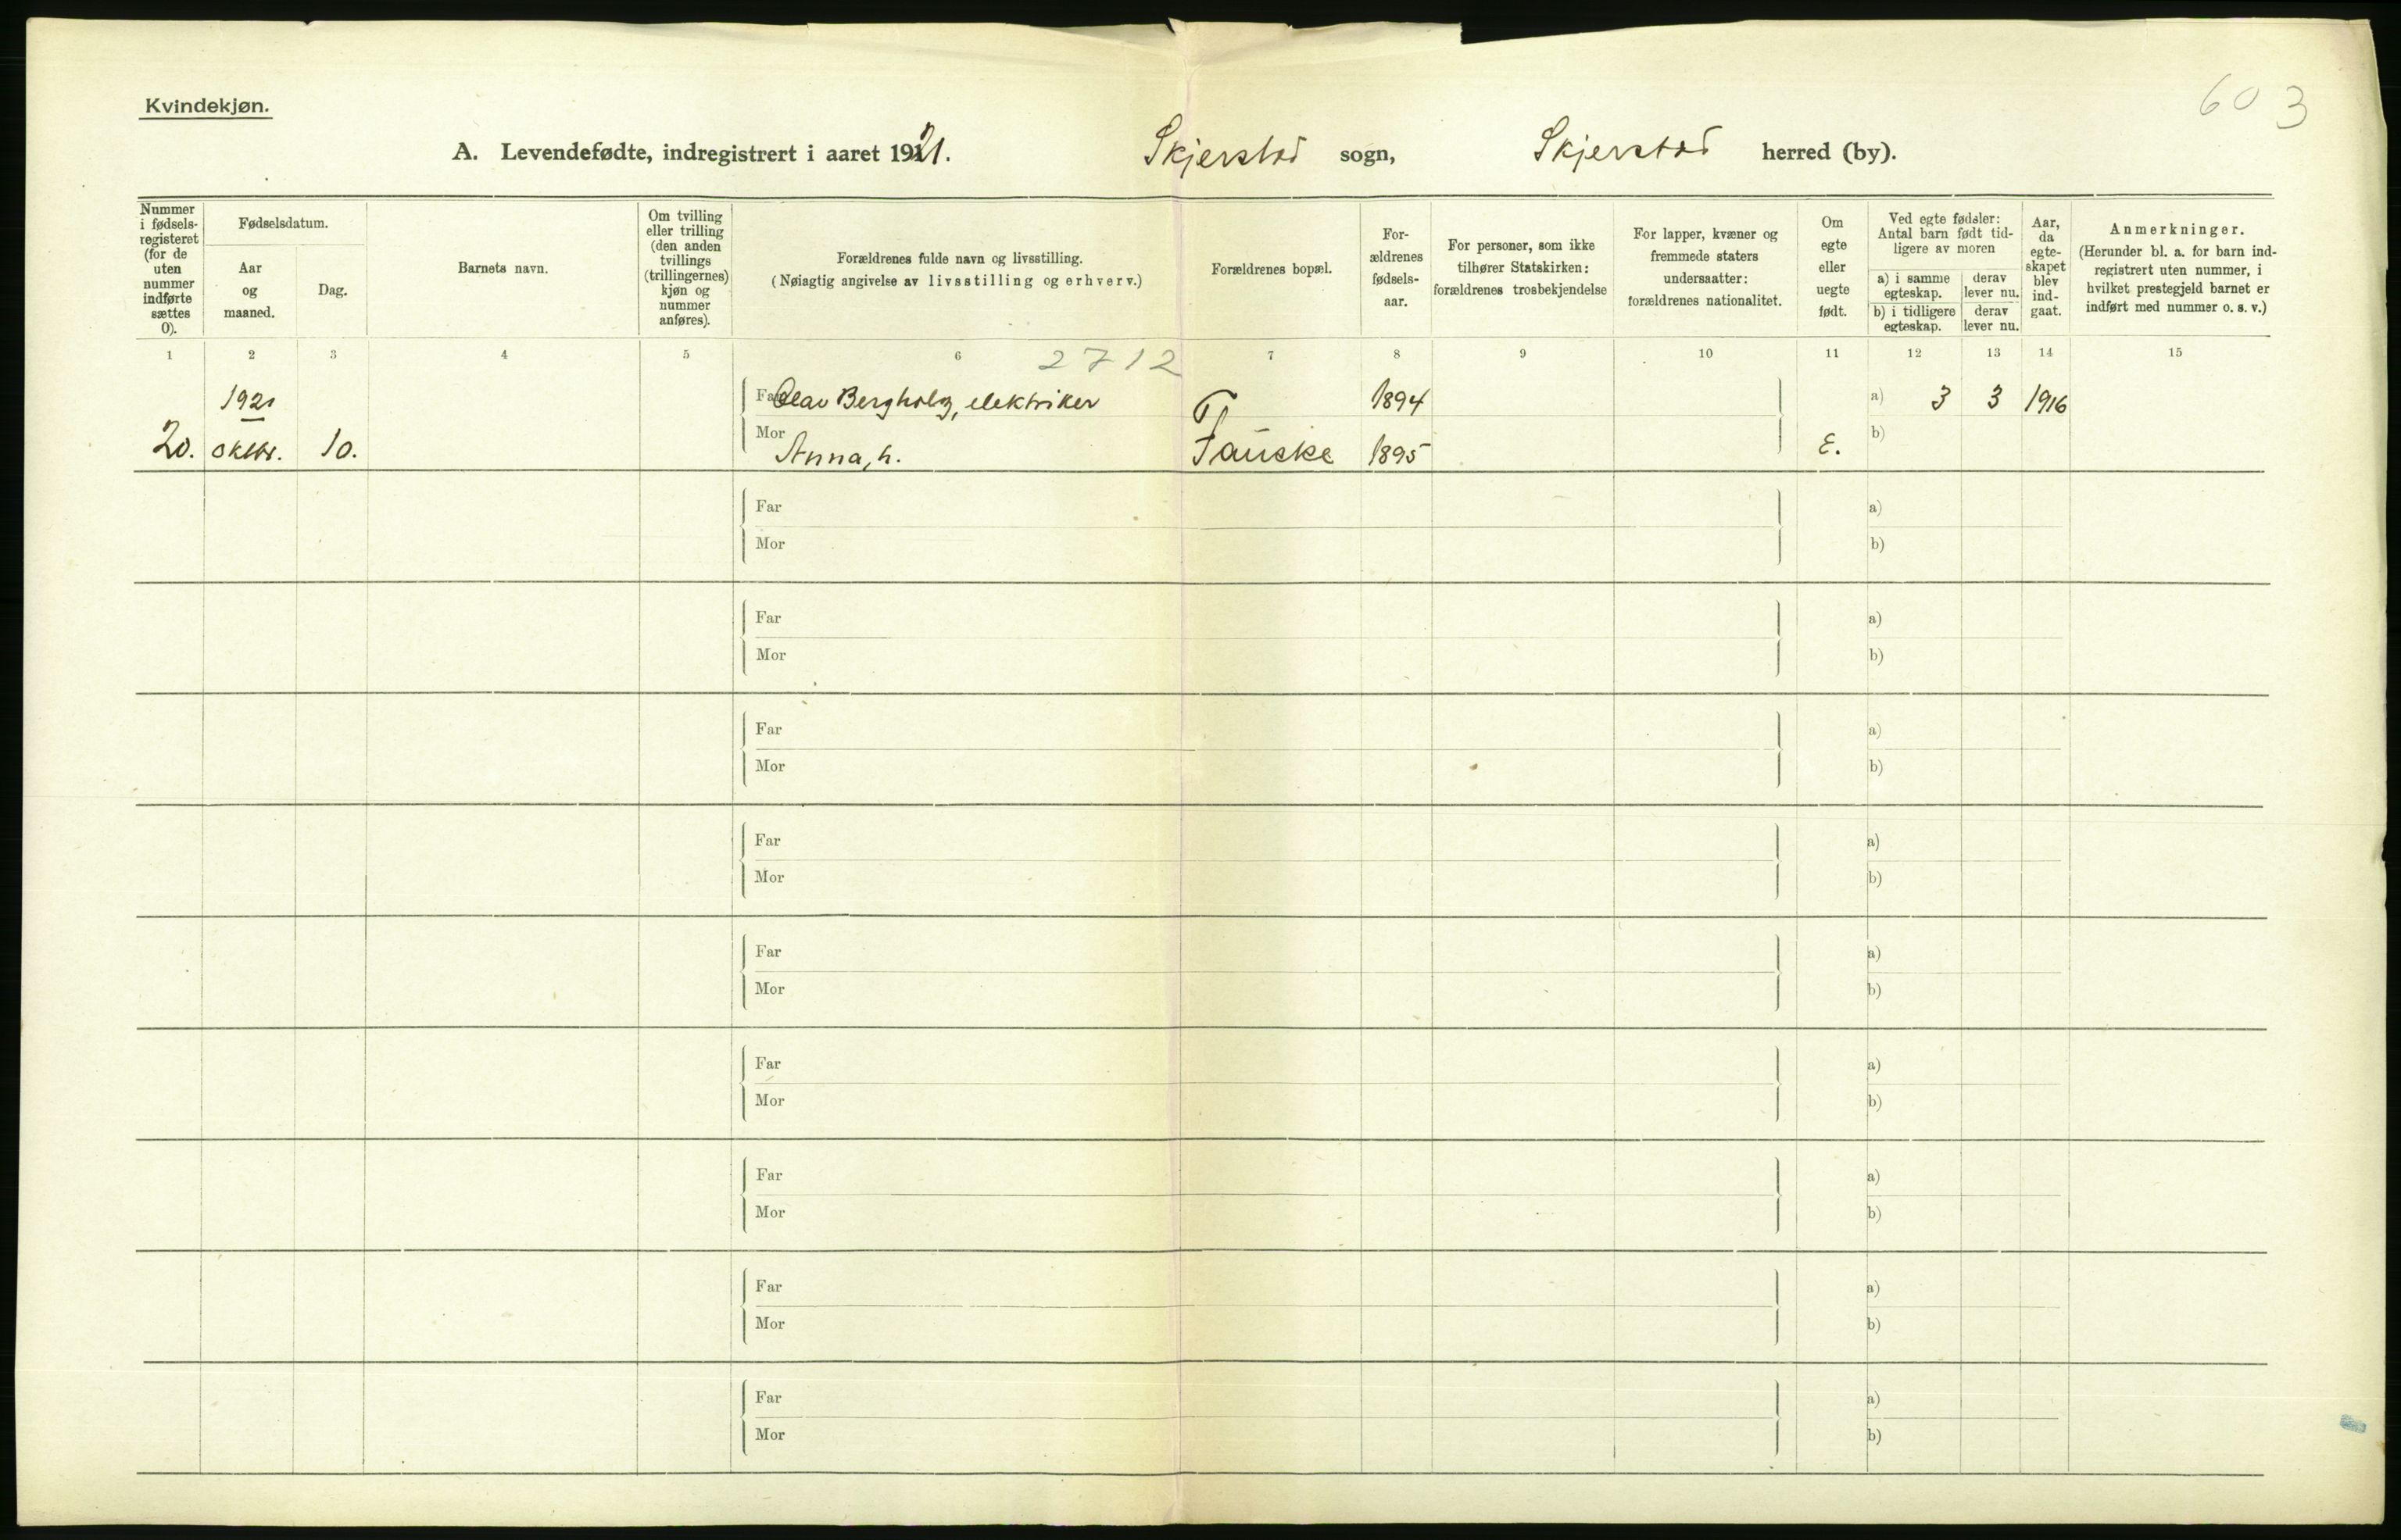 603
Kvindekjøn.
A. Levendefødte, indregistrert i aaret 1921. Skjerstad sogn, Skjerstad herred (by).
Nummer i fødsels-registeret (for de uten nummer indførte sættes 0).
Fødselsdatum.
Aar og maaned.
Dag.
Barnets navn.
Om tvilling eller trilling (den anden tvillings (trillingernes) kjøn og nummer anføres).
Forældrenes fulde navn og livsstilling.
(Nøiagtig angivelse av livsstilling og erhverv.)
Forældrenes bopæl.
For-ældrenes fødsels-aar.
For personer, som ikke tilhører Statskirken: forældrenes trosbekjendelse
For lapper, kvæner og fremmede staters undersaatter: forældrenes nationalitet.
Om egte eller uegte født.
Ved egte fødsler: Antal barn født tid-ligere av moren
a) i samme egteskap.
derav lever nu.
b) i tidligere egteskap.
derav lever nu.
Aar, da egte-skapet blev ind-gaat.
Anmerkninger.
(Herunder bl. a. for barn ind-registrert uten nummer, i hvilket prestegjeld barnet er indført med nummer o. s. v.)
1 2 3 4 5 6 2712 7 8 9 10 11 12 13 14 15
1921 Far Olav Bergholz, elektriker 1894 a) 3 3 1916
20. oktbr. 10. Mor Anna, h. Fauske 1895 E. b)
Far a)
Mor b)
Far a)
Mor b)
Far a)
Mor b)
Far a)
Mor b)
Far a)
Mor b)
Far a)
Mor b)
Far a)
Mor b)
Far a)
Mor b)
Far a)
Mor b)